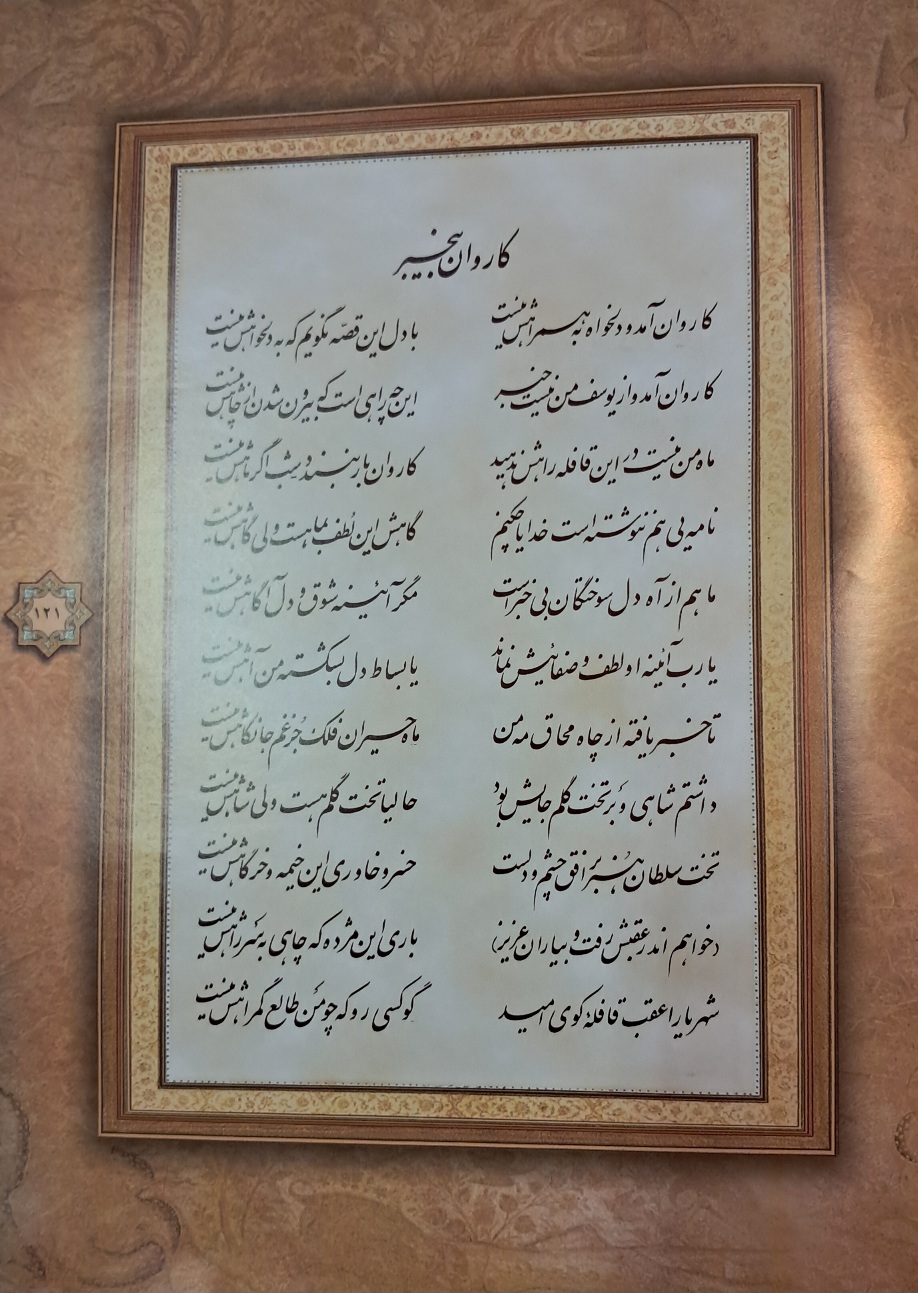 کاروان بیخبر
کاروان آمد و دلخواه به همراهش نیست
با دل این قصّه نگویم که به دلخواهش نیست
کاروان آمد و از یوسف من نیست خبر
این چه راهی است که بیرون شدن از چاهش نیست
ماه من نیست در این قافله راهش ندهید
کاروان بار نبندد شب اگر ماهش نیست
نامه‌یی هم ننوشته است خدایا چکنم
گاهش این لُطف بما هست ولی گاهش نیست
ما هم از آه دل سوختگان بی خبر است
مگر آئینه شوق و دل آگاهش نیست
یارب آئینه او لطف و صفائیش نماند
یا بساط دل بشکسته من آهش نیست
تا خبر یافته از چاه محاق مه من
ماه حیران فلک جُز غم جانکاهش نیست
داشتم شاهی و بر تخت گلم جایش بود
حالیا تخت گلم هست ولی شاهش نیست
تخت سلطان هنر بر افق چشم و دلست
خسرو خاوری این خیمه و خرگاهش نیست
خواهم اندر عقبش رفت و بیاران عزیز
باری این مژده که چاهی به سَر راهش نیست
شهریارا عقب قافلهٔ کوی امید
گو کسی رو که چو من طالع گمراهش نیست
۱۲۱